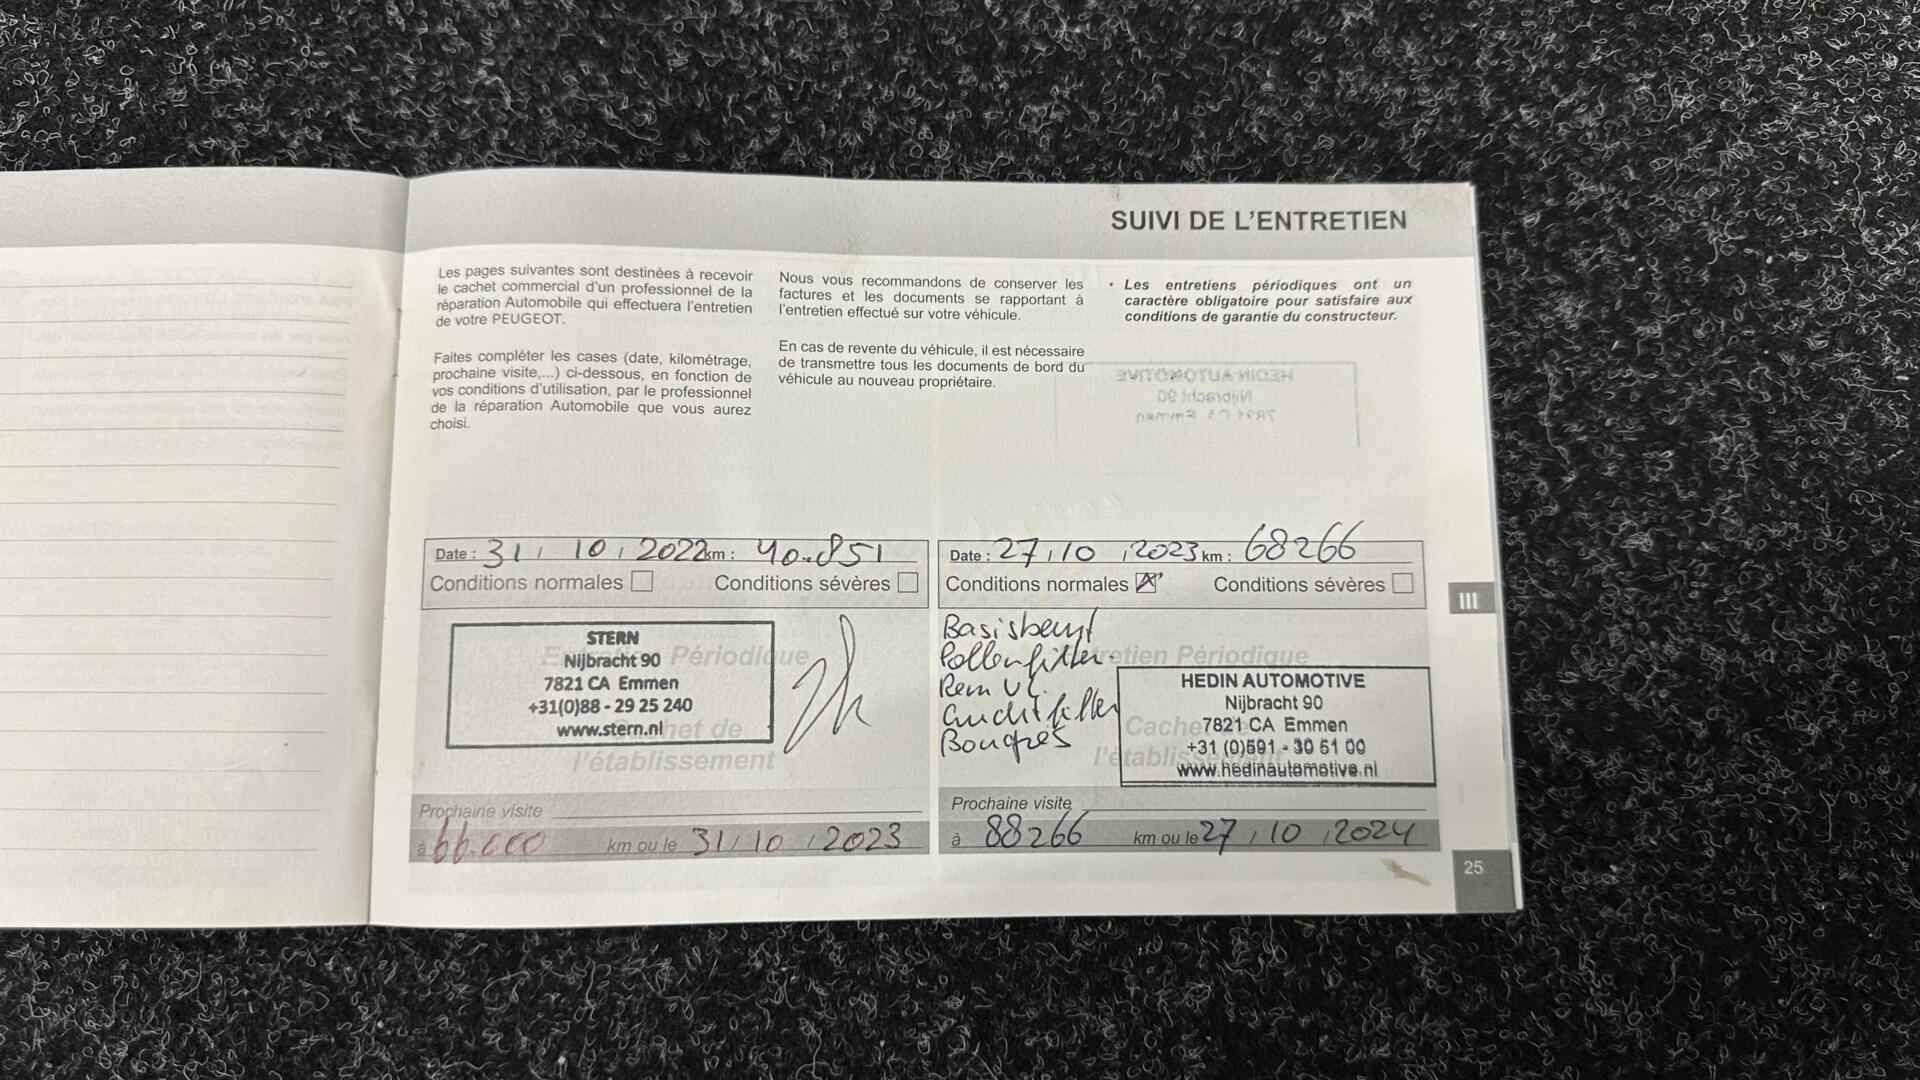 SUIVI DE L'ENTRETIEN
Les pages suivantes sont destinées à recevoir
le cachet commercial d'un professionnel de la
réparation Automobile qui effectuera l'entretien
de votre PEUGEOT.
Faites compléter les cases (date, kilométrage,
prochaine visite,...) ci-dessous, en fonction de
vos conditions d'utilisation, par le professionnel
de la réparation Automobile que vous aurez
choisi.
Nous vous recommandons de conserver les
factures et les documents se rapportant à
l'entretien effectué sur votre véhicule.
En cas de revente du véhicule, il est nécessaire
de transmettre tous les documents de bord du
véhicule au nouveau propriétaire.
• Les entretiens périodiques ont un
caractère obligatoire pour satisfaire aux
conditions de garantie du constructeur.
HEDIN AUTOMOTIVE
Nijbracht 90
7821 CA Emmen
Date : 31 / 10 / 2022 km : 40.851
Conditions normales Conditions sévères
Entretien Périodique
STERN
Nijbracht 90
7821 CA Emmen
+31(0)88 - 29 25 240
www.stern.nl
Cachet de
l'établissement
Prochaine visite
à 66.000 km ou le 31 / 10 / 2023
Date : 27 / 10 / 2023 km : 68266
Conditions normales Conditions sévères
Basisbeurt
Pollenfilter
Rem Vl.
Luchtfilter
Bougies
Entretien Périodique
HEDIN AUTOMOTIVE
Nijbracht 90
7821 CA Emmen
+31 (0)591 - 30 61 00
www.hedinautomotive.nl
Cachet de
l'établissement
Prochaine visite
à 88266 km ou le 27 / 10 / 2024
III
25